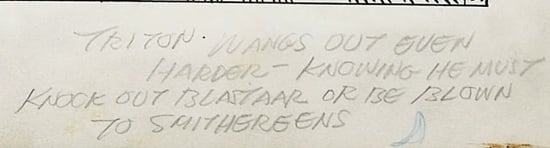 TRITON. WANGS OUT EVEN
HARDER - KNOWING HE MUST
KNOCK OUT BLASTAAR OR BE BLOWN
TO SMITHEREENS